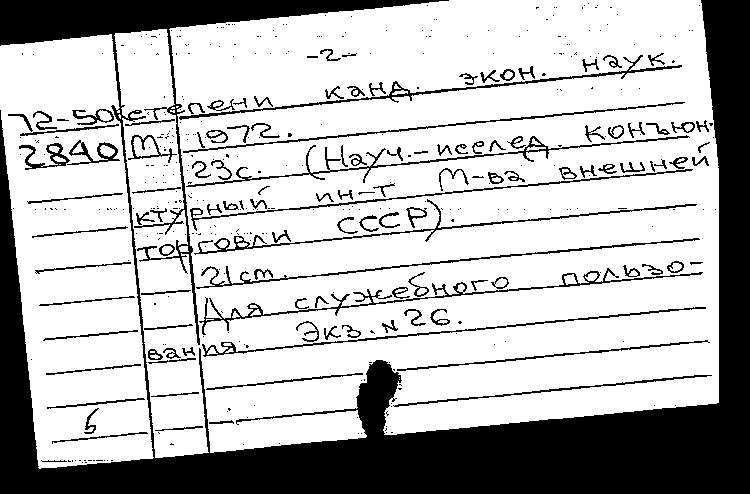 -2-
72-50к степени канд. экон. наук.
2840 М., 1972.
23с. (Науч.-исслед. конъюн-
ктурный ин-т М-ва внешней
торговли СССР).
21 cm.
Для служебного пользо-
вания. Экз. № 26.
5